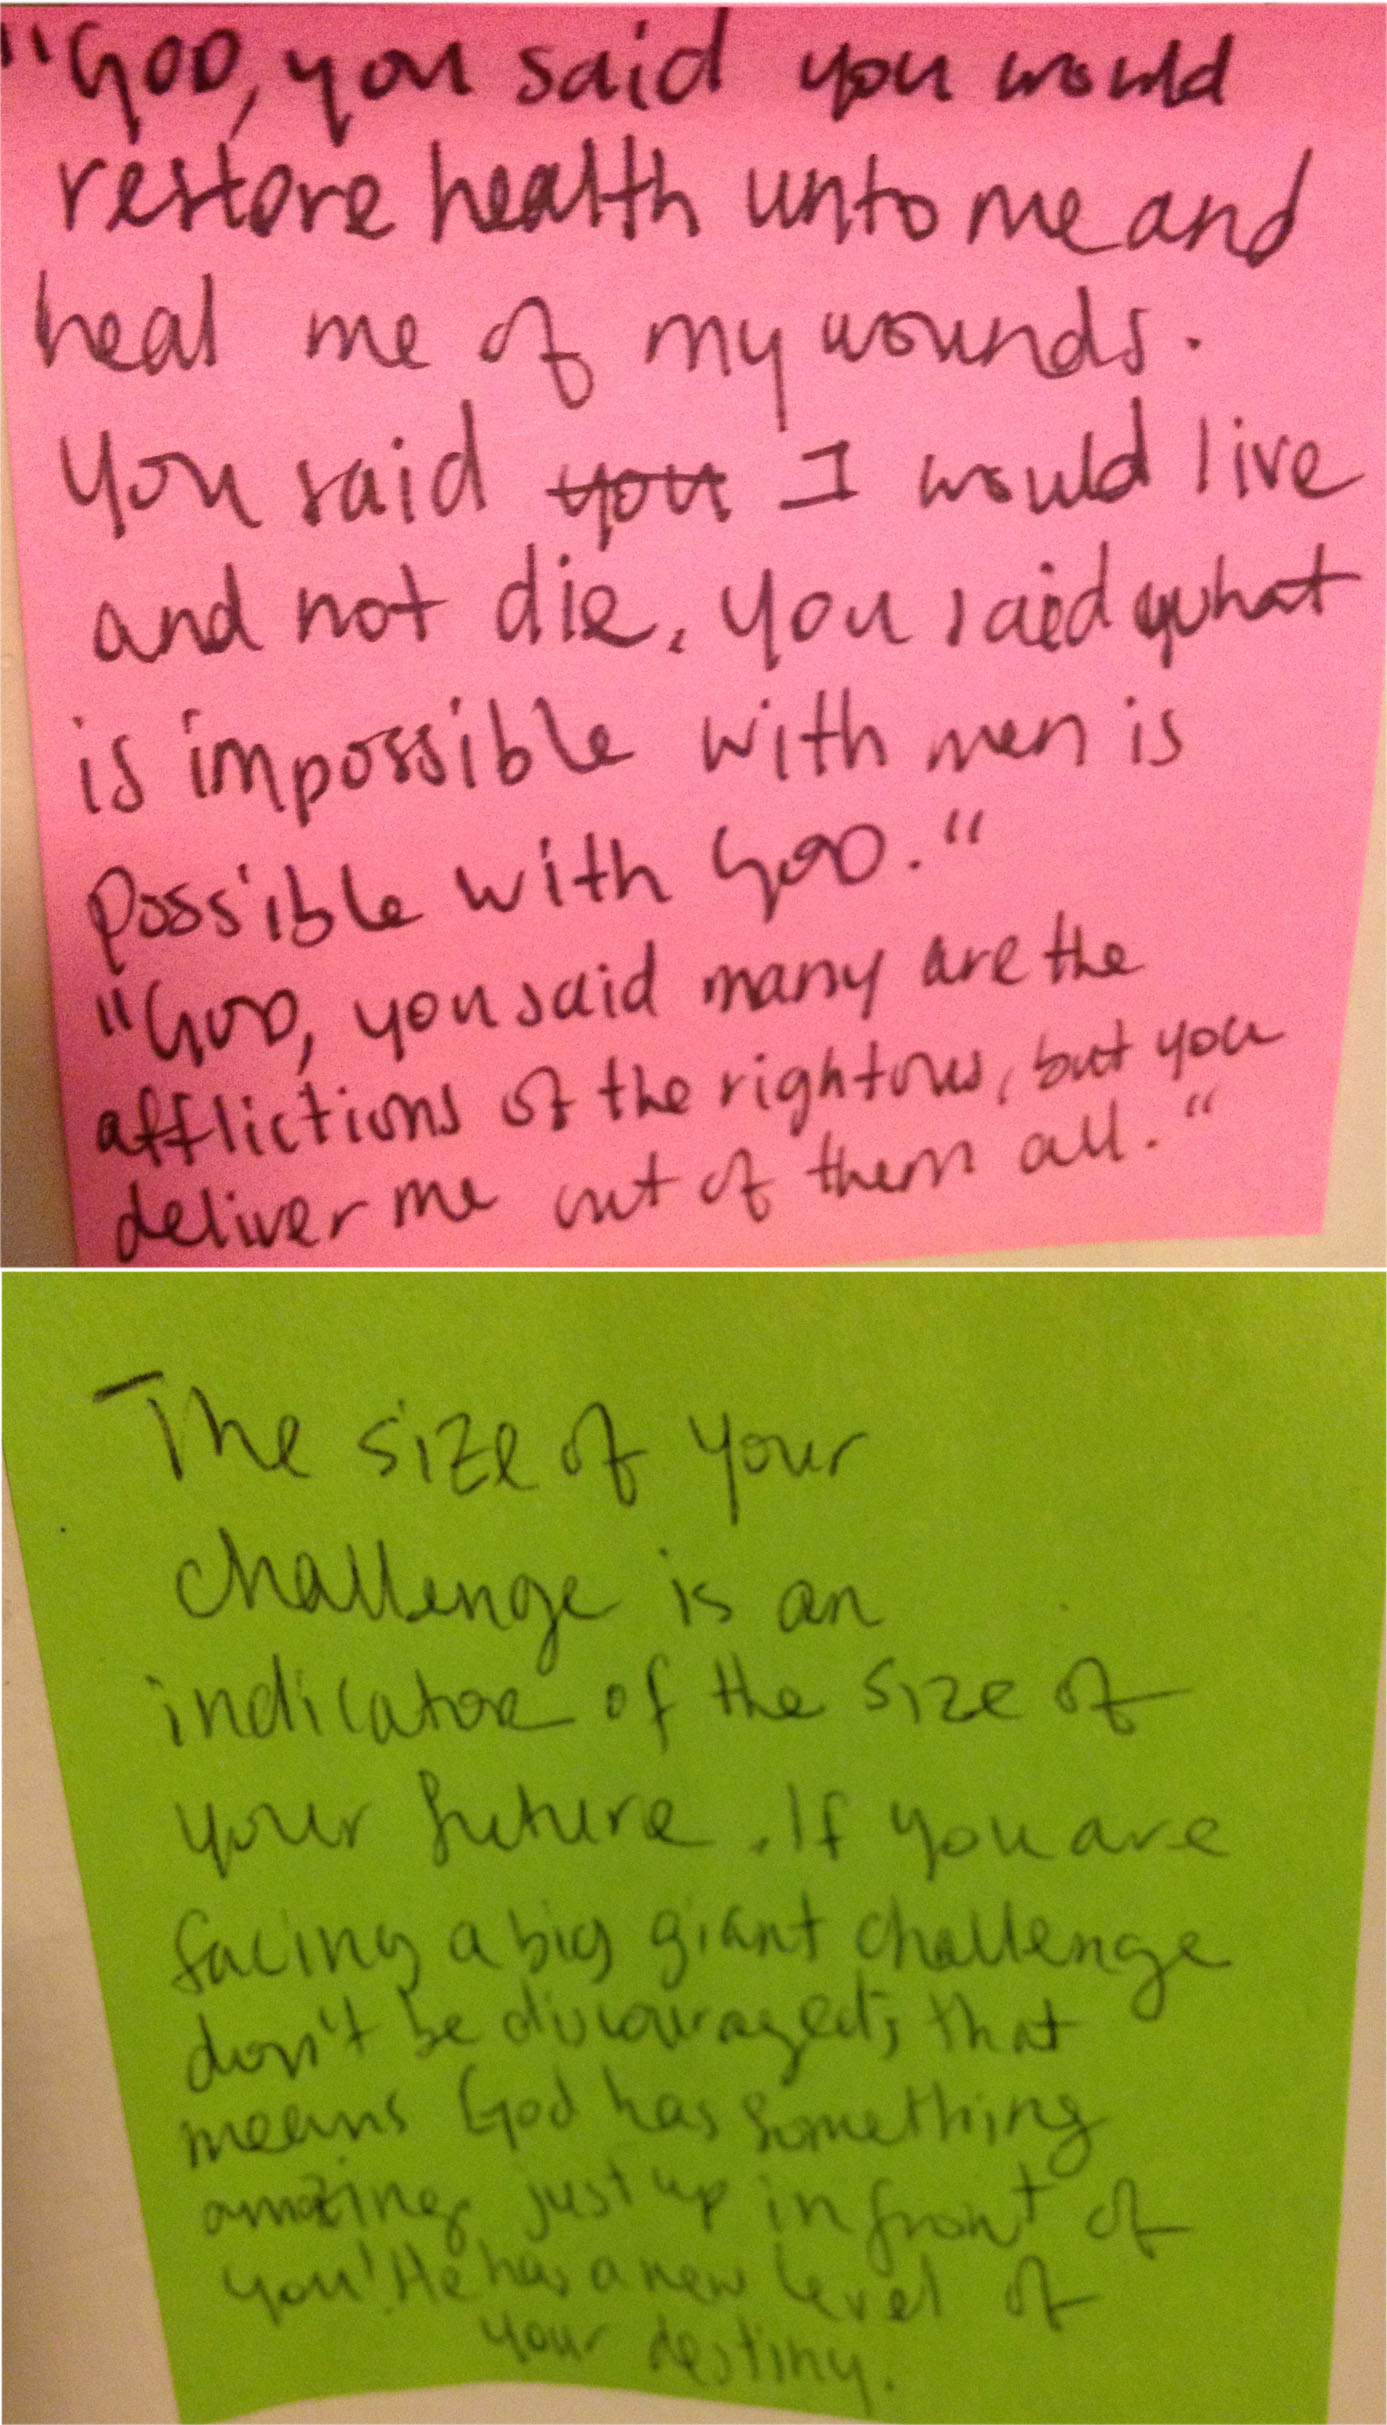 "GOD, you said you would
restore health unto me and
heal me of my wounds.
You said you I would live
and not die. You said what
is impossible with men is
possible with GOD."
"GOD, you said many are the
afflictions of the rightous, but you
deliver me out of them all."
The size of your
challenge is an
indicator of the size of
your future. If you are
facing a big giant challenge
don't be discouraged; that
means God has something
amazing just up in front of
you! He has a new level of
your destiny.